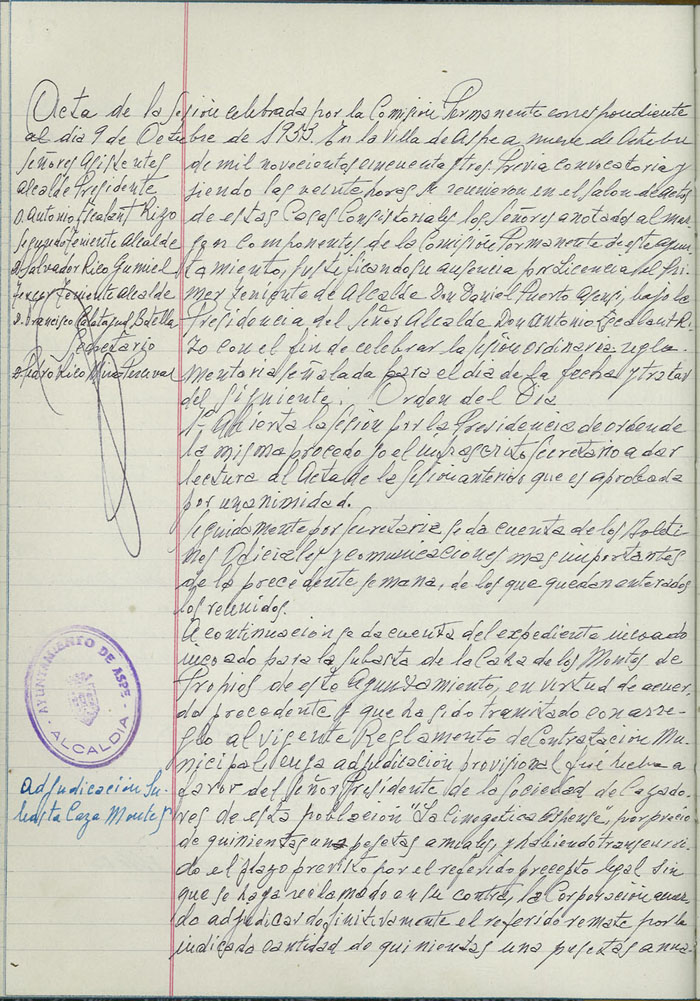 Acta de la Sesión celebrada por la Comisión Permanente correspondiente
al dia 9 de Octubre de 1953. En la Villa de Aspe a nueve de Octubre
Señores Asistentes
Alcalde Presidente
D. Antonio Escalant Rizo
Segundo Teniente Alcalde
D. Salvador Rico Gumiel
Tercer Teniente Alcalde
D. Francisco Calatayud Botella
Secretario
D. Pedro Rico
de mil novecientos cincuenta y tres. Previa convocatoria y
siendo las veinte horas se reunieron en el Salon de Actos
de estas Casas Consistoriales los Señores anotados al mar
gen componentes de la Comisión Permanente de este Ayun
tamiento, justificando su ausencia por licencia el Pri
mer Teniente de Alcalde Don Daniel Puerto Asensi, bajo la
Presidencia del Señor Alcalde Don Antonio Escalant Ri-
zo con el fin de celebrar la sesión ordinaria, regla
mentaria señalada para el dia de la fecha y tratar
del siguiente. Orden del Dia
1º- Abierta la sesión por la Presidencia de orden de
la misma procedo yo el infrascrito Secretario a dar
lectura al Acta de la Sesión anterior que es aprobada
por unanimidad.
Seguidamente por Secretaria se da cuenta de los Boleti
nes Oficiales y comunicaciones mas importantes
de la precedente semana, de los que quedan enterados
los reunidos.
A continuación se da cuenta del expediente incoado
incoado para la subasta de la Caza de los Montes de
Propios de este Ayuntamiento, en virtud de acuer
do precedente y que ha sido tramitado con arre-
glo al vigente Reglamento de Contratacion Mu
nicipal cuya adjudicación provisional fue hecha a
favor del Señor Presidente de la Sociedad de Cazado
res de esta población "La Cinegetica Aspense", por precio
de quinientas una pesetas anuales, y habiendo transcurri
do el plazo previsto por el referido precepto legal sin
que se haya reclamado en su contra, la Corporación acuer
do adjudicar definitivamente el referido remate por la
indicada cantidad de quinientas una pesetas anua-
AYUNTAMIENTO DE ASPE
- ALCALDIA -
adjudicación Su-
basta Caza Montes